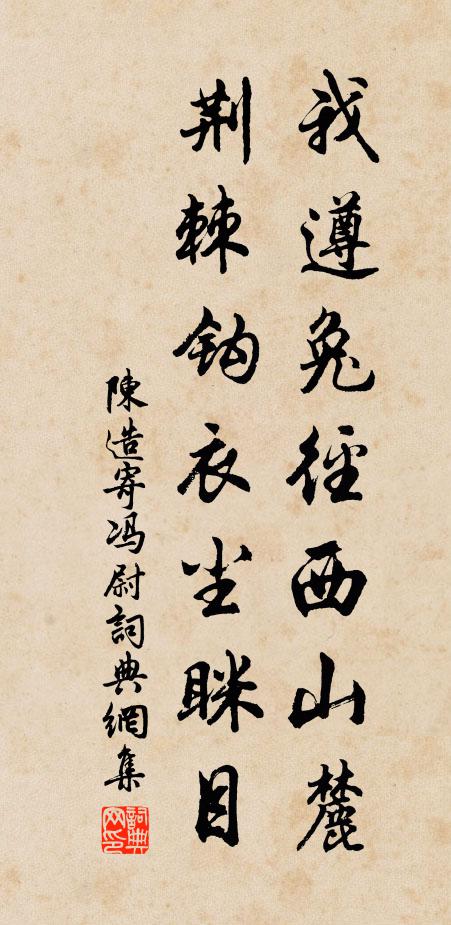 我遵兔徑西山麓
荆棘鈎衣尘眯目
陳造寄冯尉詞典網集
詞典网印